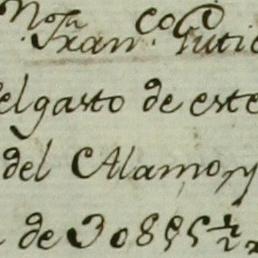 Fran.co Gutie
el gasto de este
del Alamo y
de 30895 1/2